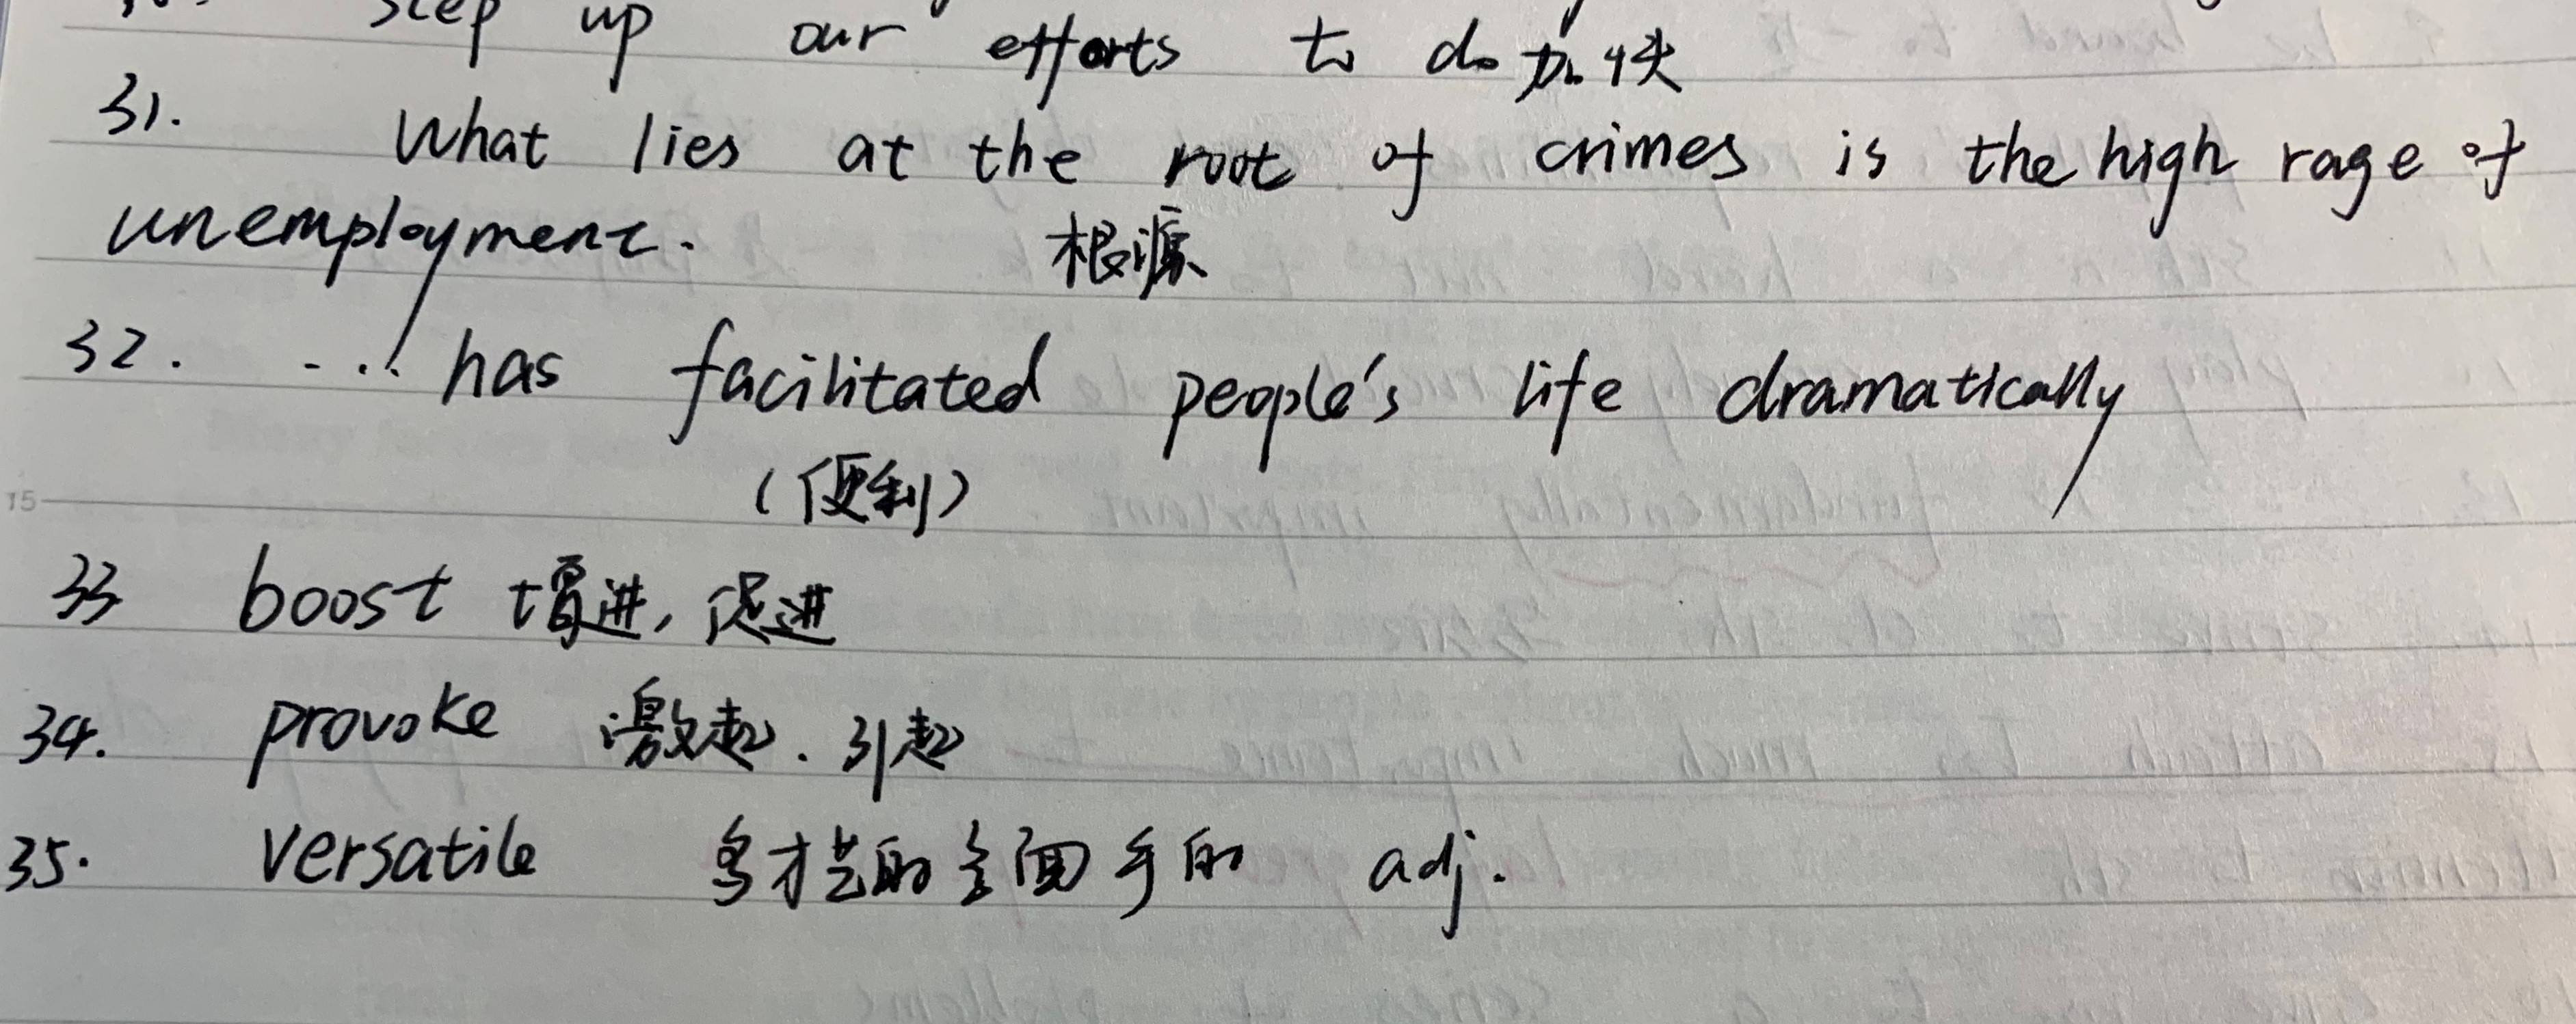 step up our efforts to do 加快
31. What lies at the root of crimes is the high rage of
unemployment. 根源
32. ... has facilitated people's life dramatically
(便利)
15
33 boost 增进, 促进
34. provoke 激起. 引起
35. versatile 多才艺的全面手的 adj.